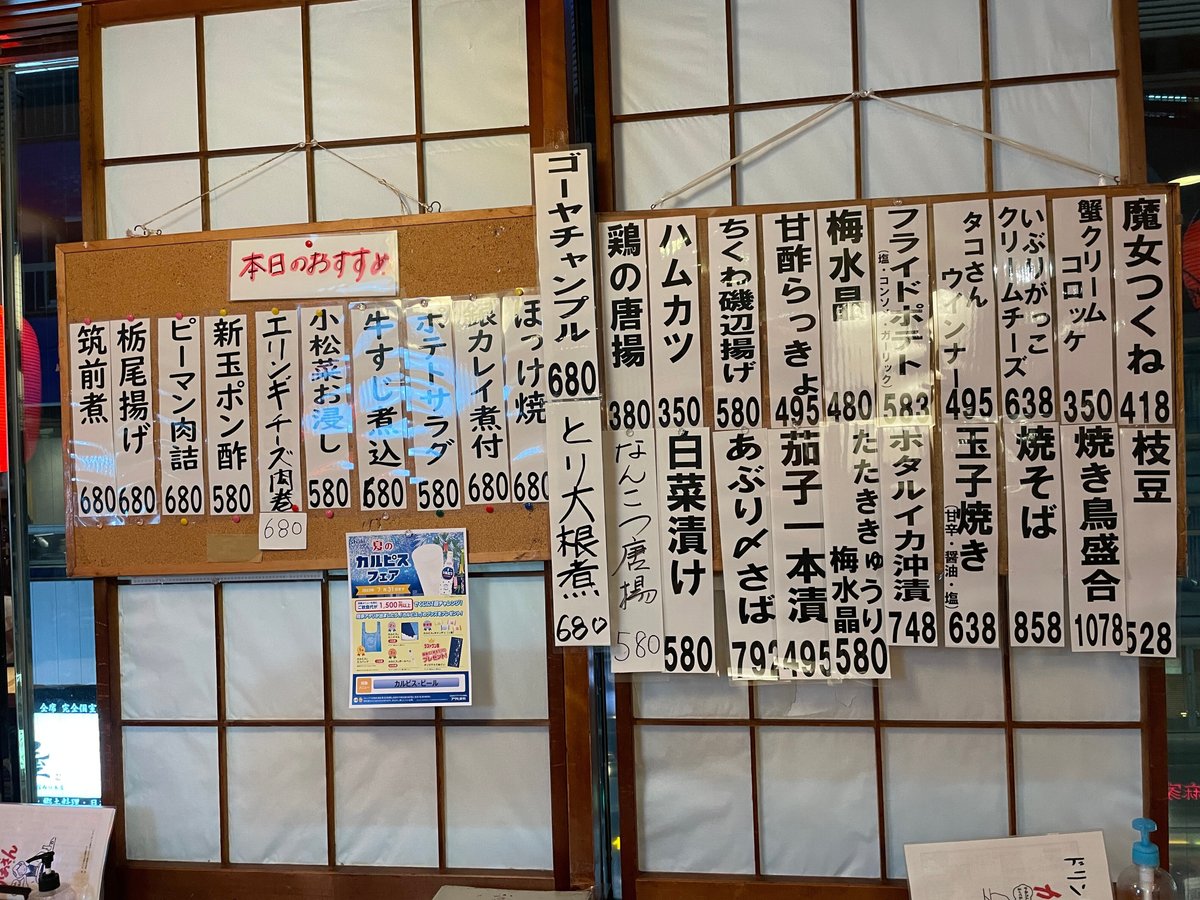 本日のおすすめ
ほっけ焼
680
銀カレイ煮付
680
ポテトサラダ
580
牛すじ煮込
680
小松菜お浸し
580
エリンギチーズ肉巻
680
新玉ポン酢
580
ピーマン肉詰
680
栃尾揚げ
680
筑前煮
680
ゴーヤチャンプル
680
とり大根煮
680
魔女つくね
418
蟹クリーム
コロッケ
350
いぶりがっこ
クリームチーズ
638
タコさん
ウインナー
495
フライドポテト
(塩・コンソメ・ガーリック)
583
梅水晶
480
甘酢らっきょ
495
ちくわ磯辺揚げ
580
ハムカツ
350
鶏の唐揚
380
枝豆
528
焼き鳥盛合
1078
焼そば
858
玉子焼き
(甘辛・醤油・塩)
638
ホタルイカ沖漬
748
たたききゅうり
梅水晶
580
茄子一本漬
495
あぶり〆さば
792
白菜漬け
580
なんこつ唐揚
580
夏の
カルピス
フェア
1,500円以上
プレゼント
カルピス・ビール
全席 完全個室
ドリン